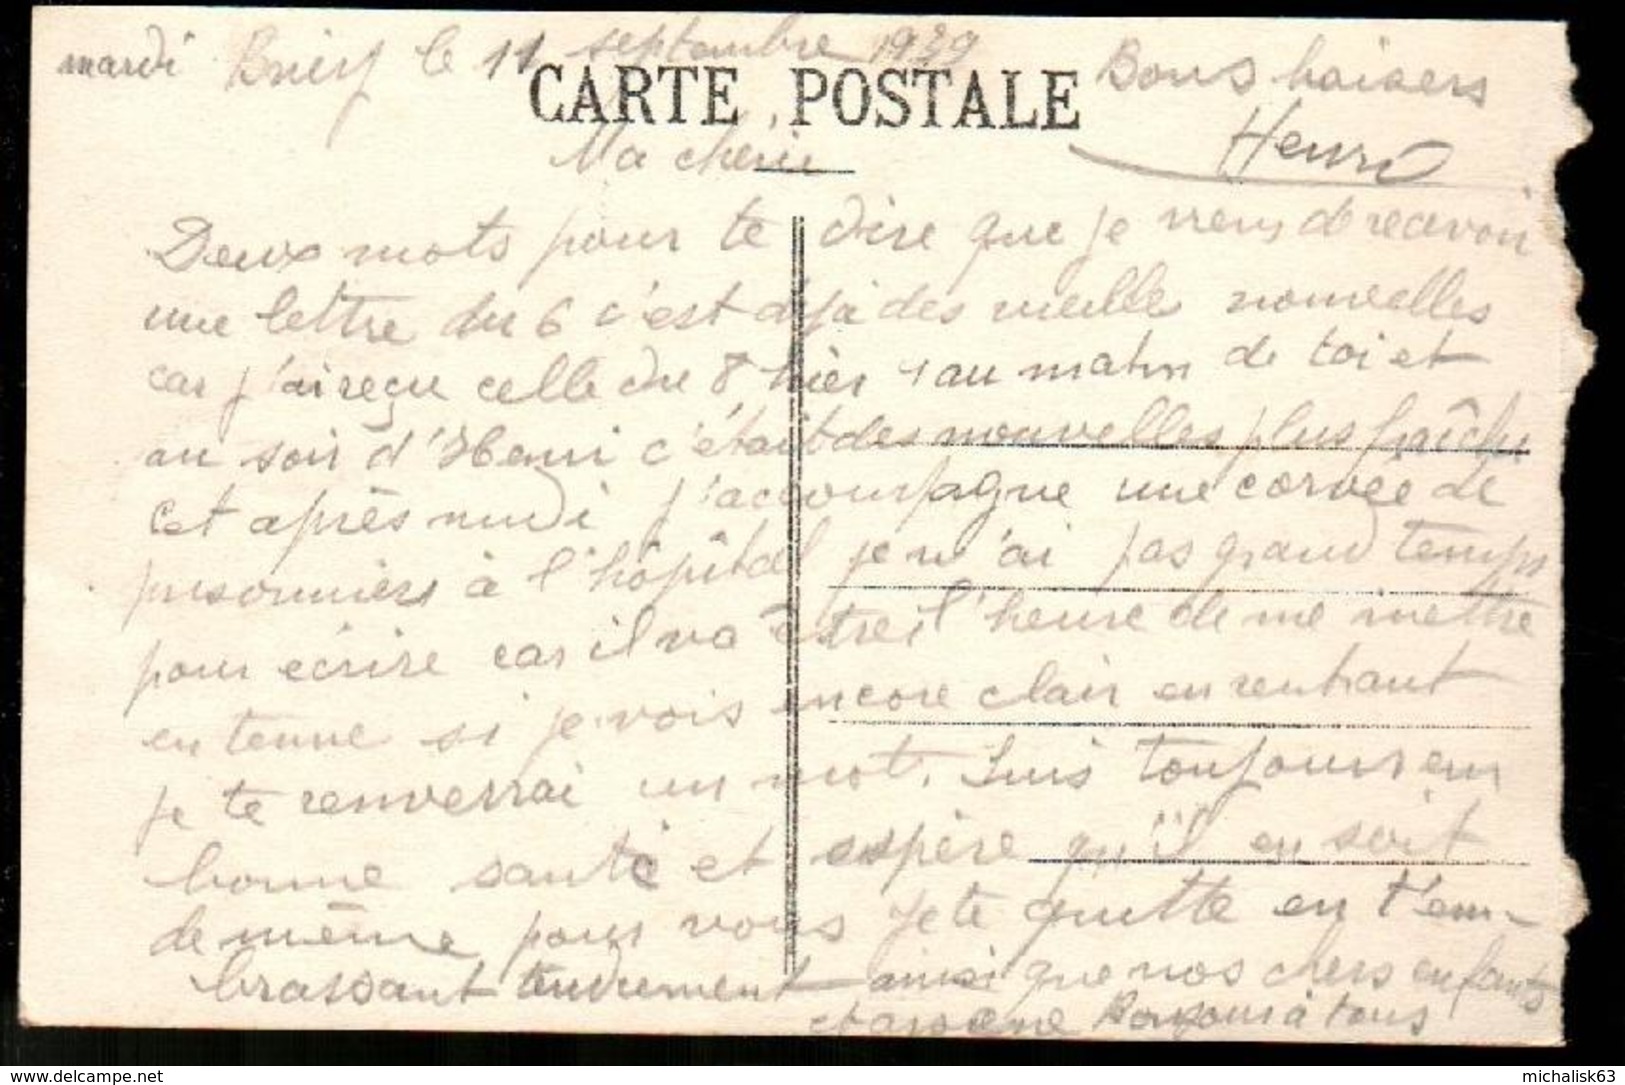 mardi Briey le 11 septembre 1939
CARTE POSTALE
Bons baisers
Henri
Ma cherie
Deux mots pour te dire que je viens de recevoir
une lettre du 6 c'est déjà des vieille nouvelles
car j'ai reçu celle du 8 hier au matin de toi et
au soir d'Henri c'était des nouvelles plus fraîche
cet après midi j'accompagne une corvée de
prisonniers à l'hôpital je n'ai pas grand temps
pour écrire car il va être l'heure de me mettre
en tenue si je vois encore clair en rentrant
je te renverrai un mot. Suis toujours en
bonne santé et espère qu'il en soit
de même pour vous je te quitte en t'em-
brassant tendrement ainsi que nos chers enfants
Bonjour à tous
www.delcampe.net
michalisk63